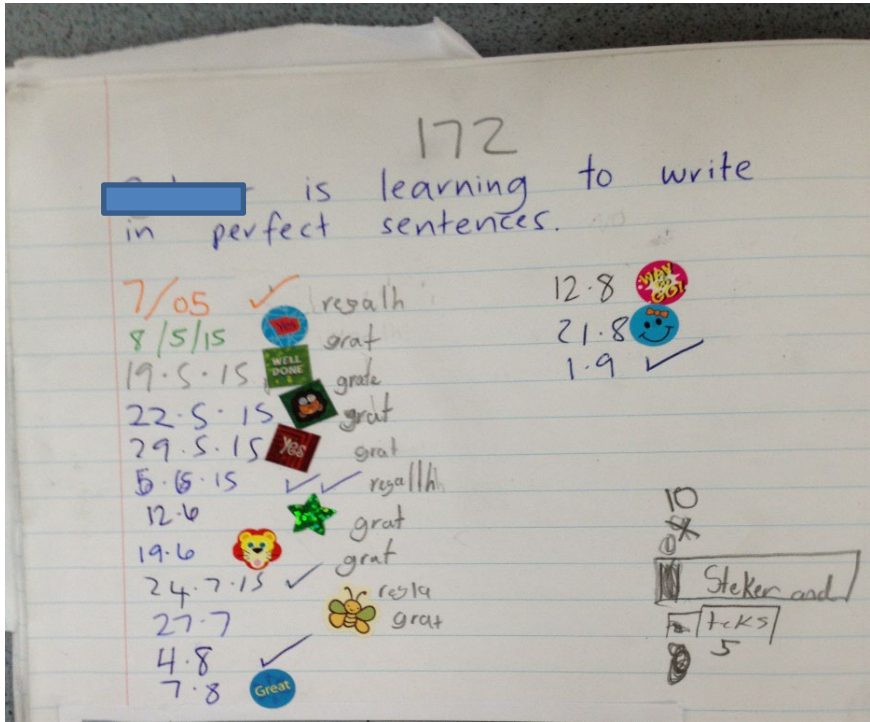 172
is learning to write
in perfect sentences.
7/05 ✓ regalh
8/5/15 Yes grat
19.5.15 WELL DONE grate
22.5.15 grat
29.5.15 Yes grat
5.6.15 ✓✓ regallh
12.6 grat
19.6 grat
24.7.15 ✓ regla
27.7 grat
4.8 ✓
7.8 Great
12.8 WAY TO GO!
21.8
1.9 ✓
10
Steker and
teks
5